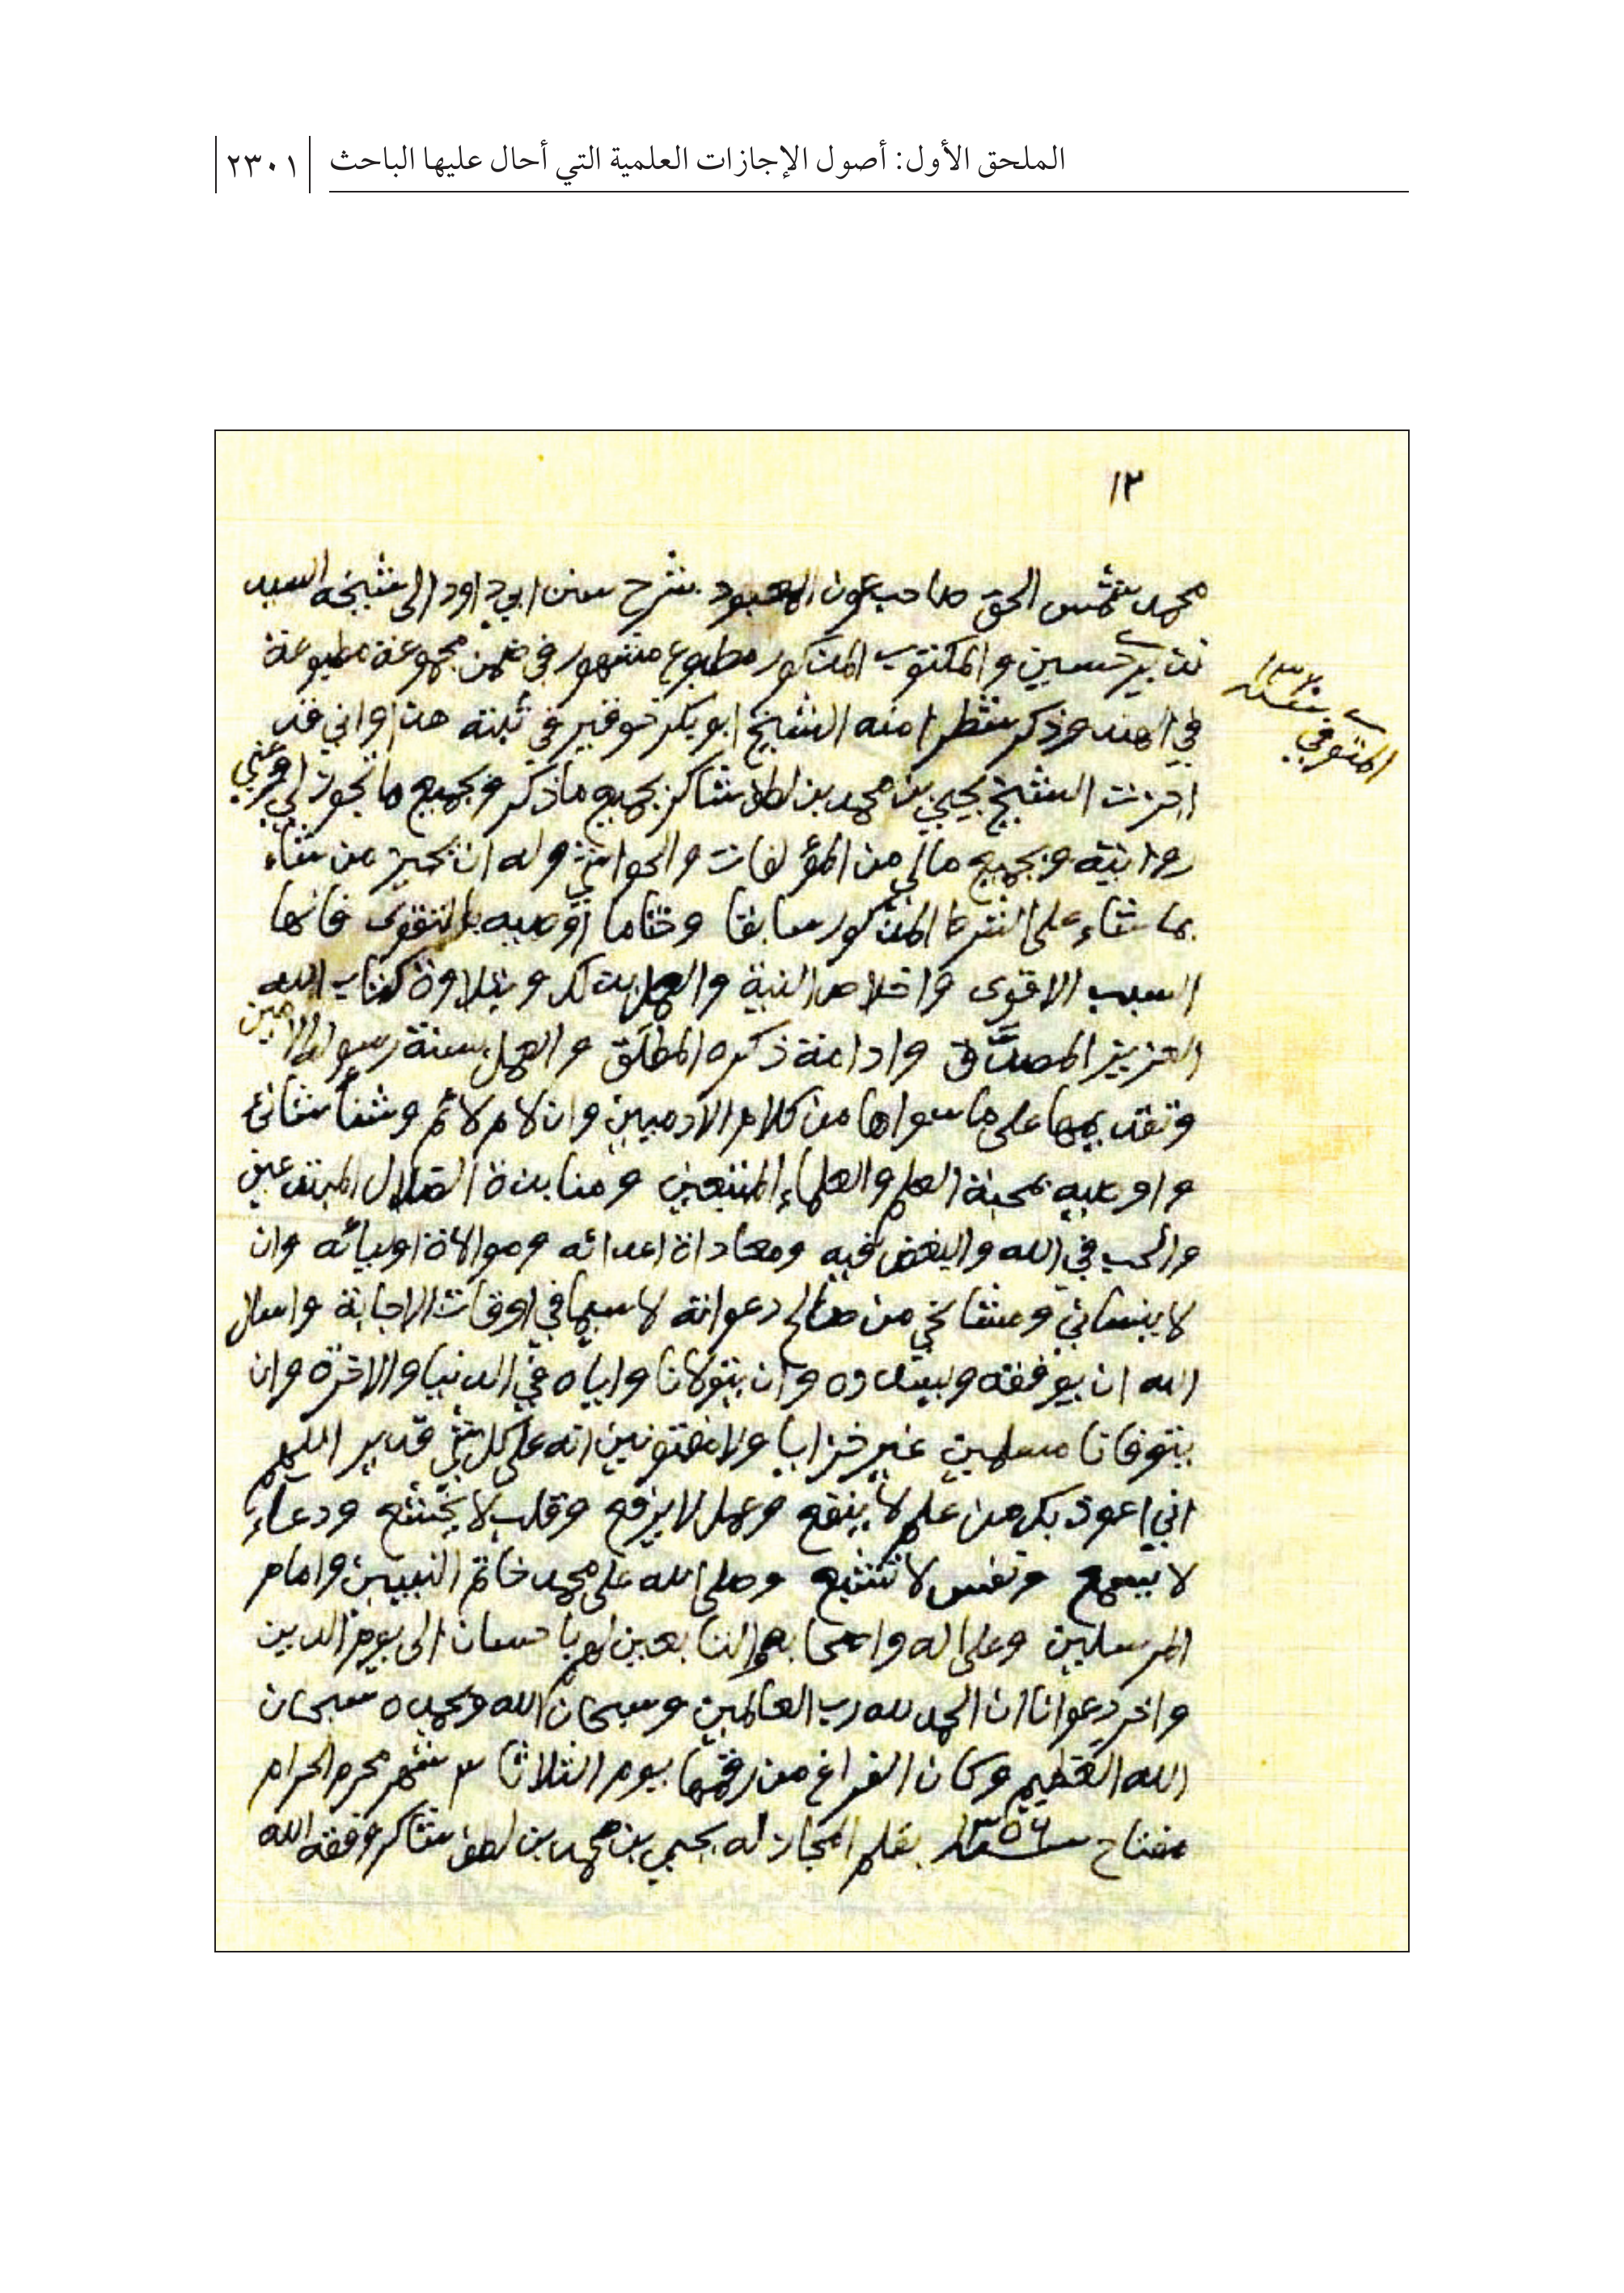 الملحق الأول: أصول الإجازات العلمية التي أحال عليها الباحث
٢٣٠١
١٢
محمد شمس الحق صاحب عون المعبود شرح سنن ابي داود الى شيخه السيد
نذير حسين والمكتوب المذكور مطبوع مشهور في ضمن مجموعة مطبوعة
المتوفي سنة
في الهند وذكر شطرا منه الشيخ ابو بكر خوقير في ثبته هذا واني قد
اجزت الشيخ يحيى بن محمد بن لطف شاكر بجميع ما ذكر وبجميع ما تجوز لي وعني
روايته وبجميع مالي من المؤلفات والحواشي وله ان يجيز من شاء
بما شاء على الشرط المذكور سابقا وختاما أوصيه بالتقوى فانها
السبب الاقوى واخلاص النية والعمل بذلك وبتلاوة كتاب الله
العزيز المصدَّق وادامة ذكره المطلق والعمل بسنة رسوله الامين
وتقديمها على ما سواها من كلام الآدميين وان لام لائم وشنأ شانئ
واوصيه بمحبة العلم والعلماء المتبعين ومنابذة الضلال المبتدعين
والحب في الله والبغض فيه ومعاداة اعدائه وموالاة اوليائه وان
لا ينساني ومشائخي من صالح دعواته لا سيما في اوقات الاجابة واسال
الله ان يوفقه ويسدده وان يتولانا واياه في الدنيا والاخرة وان
يتوفانا مسلمين غير خزايا ولا مفتونين انه على كل شئ قدير اللهم
اني اعوذ بك من علم لا ينفع وعمل لا يرفع وقلب لا يخشع ودعاء
لا يسمع ونفس لا تشبع وصلى الله على محمد خاتم النبيين وامام
المرسلين وعلى اله واصحابه والتابعين لهم باحسان الى يوم الدين
واخر دعوانا ان الحمد لله رب العالمين وسبحان الله وبحمده سبحان
الله العظيم وكان الفراغ من رقمها يوم الثلاثا ٣ شهر محرم الحرام
مفتاح سنة ١٣٥٦ بقلم المجاز له يحيى بن محمد بن لطف شاكر وفقه الله